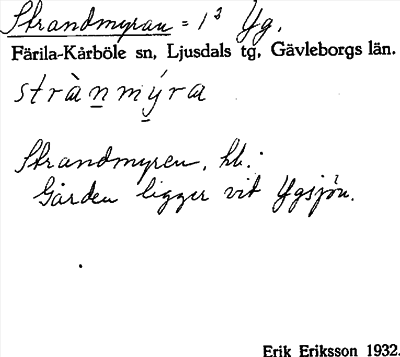 Strandmyran = 1³ Yg.
Färila-Kårböle sn, Ljusdals tg, Gävleborgs län.
stràn̲mý̲ra
Strandmyren, hb.:
Gården ligger vid Ygsjön.
Erik Eriksson 1932.